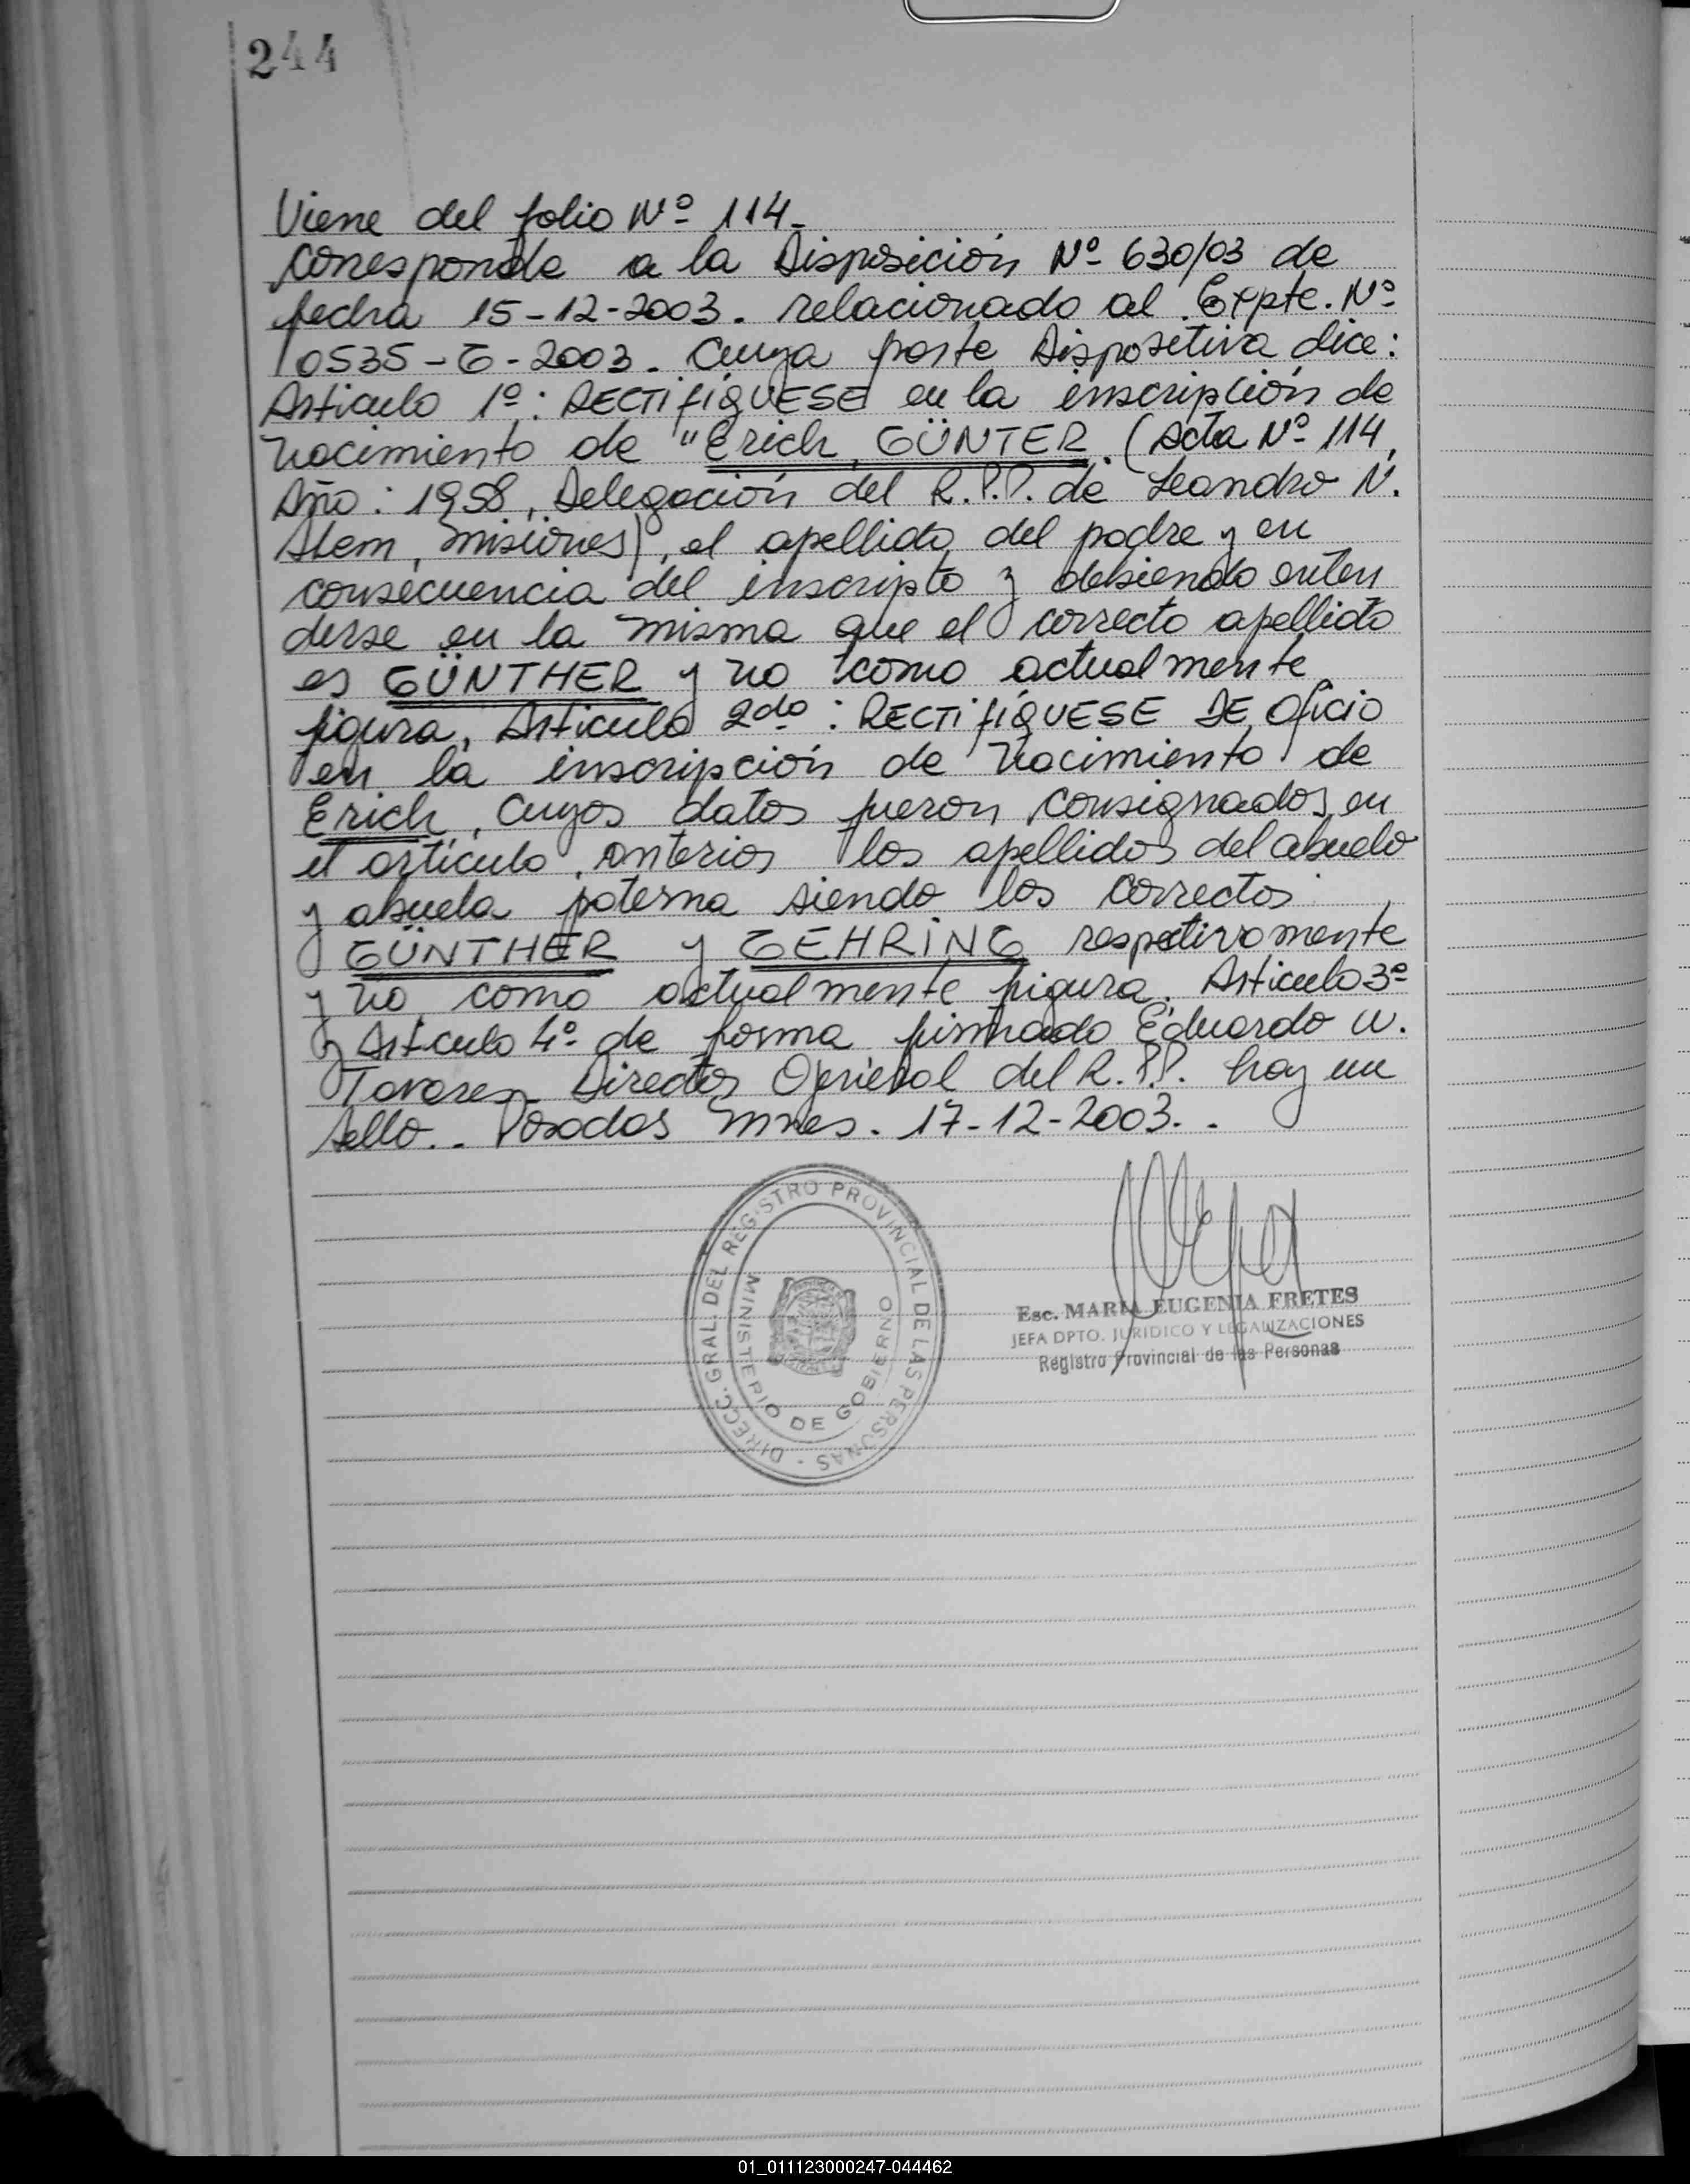 244
Viene del folio Nº 114_
corresponde a la Disposición Nº 630/03 de
fecha 15-12-2003. relacionado al Expte. Nº
0535-G-2003. Cuya parte Dispositiva dice:
Articulo 1º: RECTIFÍQUESE en la inscripción de
nacimiento de "Erich, GÜNTER. (Acta Nº 114,
Año: 1958, Delegación del R.P.P. de Leandro N.
Alem, Misiones), el apellido del padre y en
consecuencia del inscripto y debiendo enten
derse en la misma que el correcto apellido
es GÜNTHER y no como actualmente
figura, Articulo 2do: RECTIFÍQUESE DE Oficio
en la inscripción de nacimiento de
Erich, cuyos datos fueron consignados en
el artículo anterior los apellidos del abuelo
y abuela paterna siendo los correctos
GÜNTHER y GEHRING respectivamente
y no como actualmente figura. Articulo 3º
y Artculo 4º de forma firmado Eduardo W.
Tavares Director General del R.P.P. hay un
sello.- Posadas Mnes. 17-12-2003. .
DIRECC. GRAL. DEL REGISTRO PROVINCIAL DE LAS PERSONAS -
MINISTERIO DE GOBIERNO
Esc. MARIA EUGENIA FRETES
JEFA DPTO. JURIDICO Y LEGALIZACIONES
Registro Provincial de las Personas
01_011123000247-044462